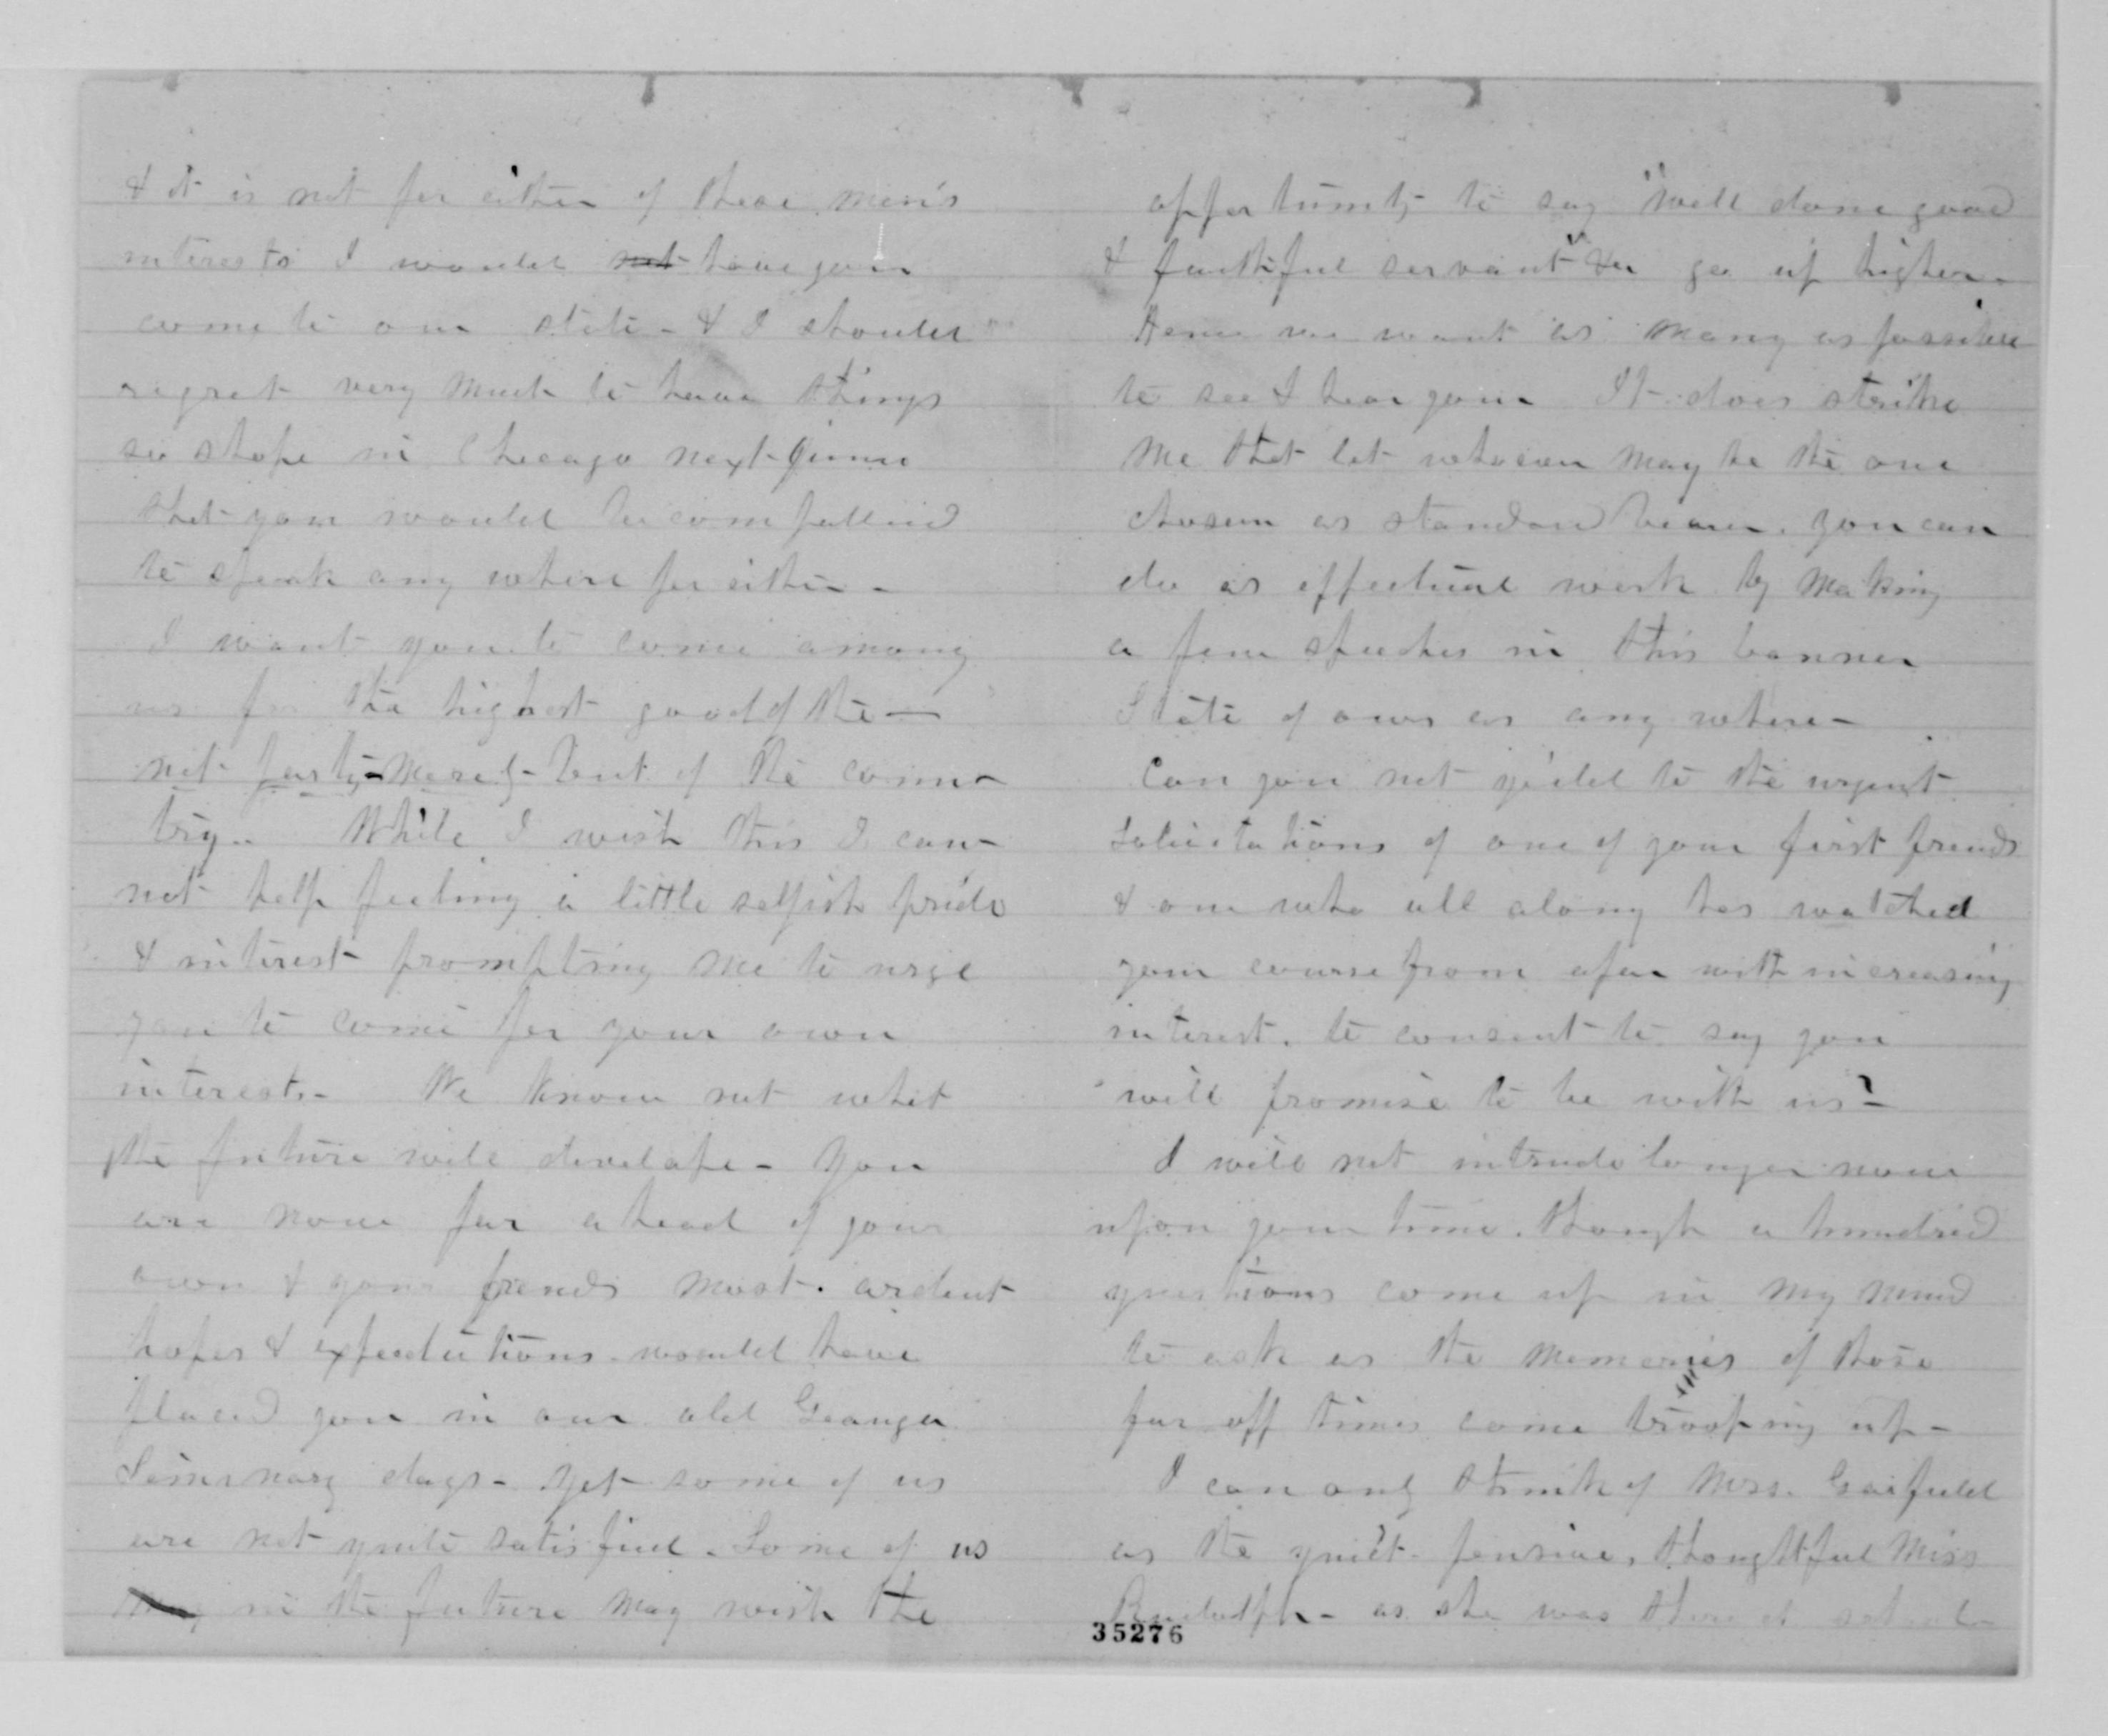 & it is not for either of these men's
interests I would not have you
come to our state - & I should
regret very much to have things
so shape in Chicago next June
that you would be compelled
to speak any where for either -
I want you to come among
us for the highest good of the —
not party - merely - but of the coun-
try - While I wish this I can-
not help feeling a little selfish pride
& interest prompting me to urge
you to come for your own
interests - We know not what
the future will develope - You
are now far ahead of your
own & your friends most ardent
hopes & expectations would have
placed you in our old Geauga
Seminary days - Yet some of us
are not quite satisfied. Some of us
may in the future may wish the
opportunity to say "Well done good
& faithful servant" & go up higher -
Hence we want as many as possible
to see & hear you. It does strike
me that let whoever may be the one
chosen as standard bearer, you can
do as effectual work by making
a few speeches in this banner
State of ours as any where -
Can you not yield to the urgent
solicitations of one of your first friends
& one who all along has watched
your course from afar with increasing
interest, to consent to say you
will promise to be with us? -
I will not intrude longer now
upon your time, though a hundred
questions come up in my mind
to ask as the memories of those
far off times come trooping up -
I can only think of Mrs. Garfield
as the quiet, pensive, thoughtful Miss
Rudolph - as she was there at school -
35276